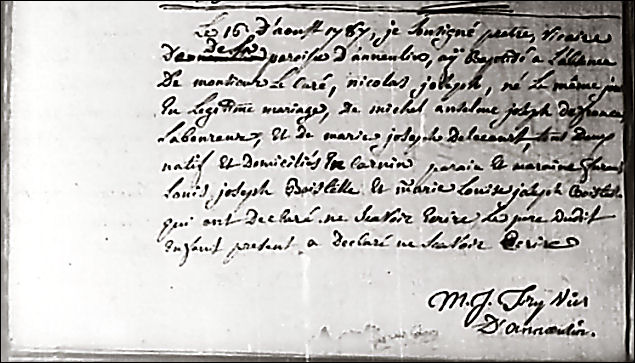 Le 16 D'aoust 1787, je soussigné pretre, vicaire
de la paroisse D'annoeulin, ay Baptisé a L'absence
De monsieur Le Curé, nicolas joseph, né Le même jour
En Legitime mariage, De michel anselme joseph
Laboureur, et De marie joseph tous Deux
natif Et Domiciliés En Carnin parain Et maraine furent
Louis joseph Et marie Louise joseph
qui ont Declaré ne Scavoir Ecrire Le pere Dudit
Enfant present a Declaré ne Scavoir Ecrire
M. J. vic
D'annoeulin.